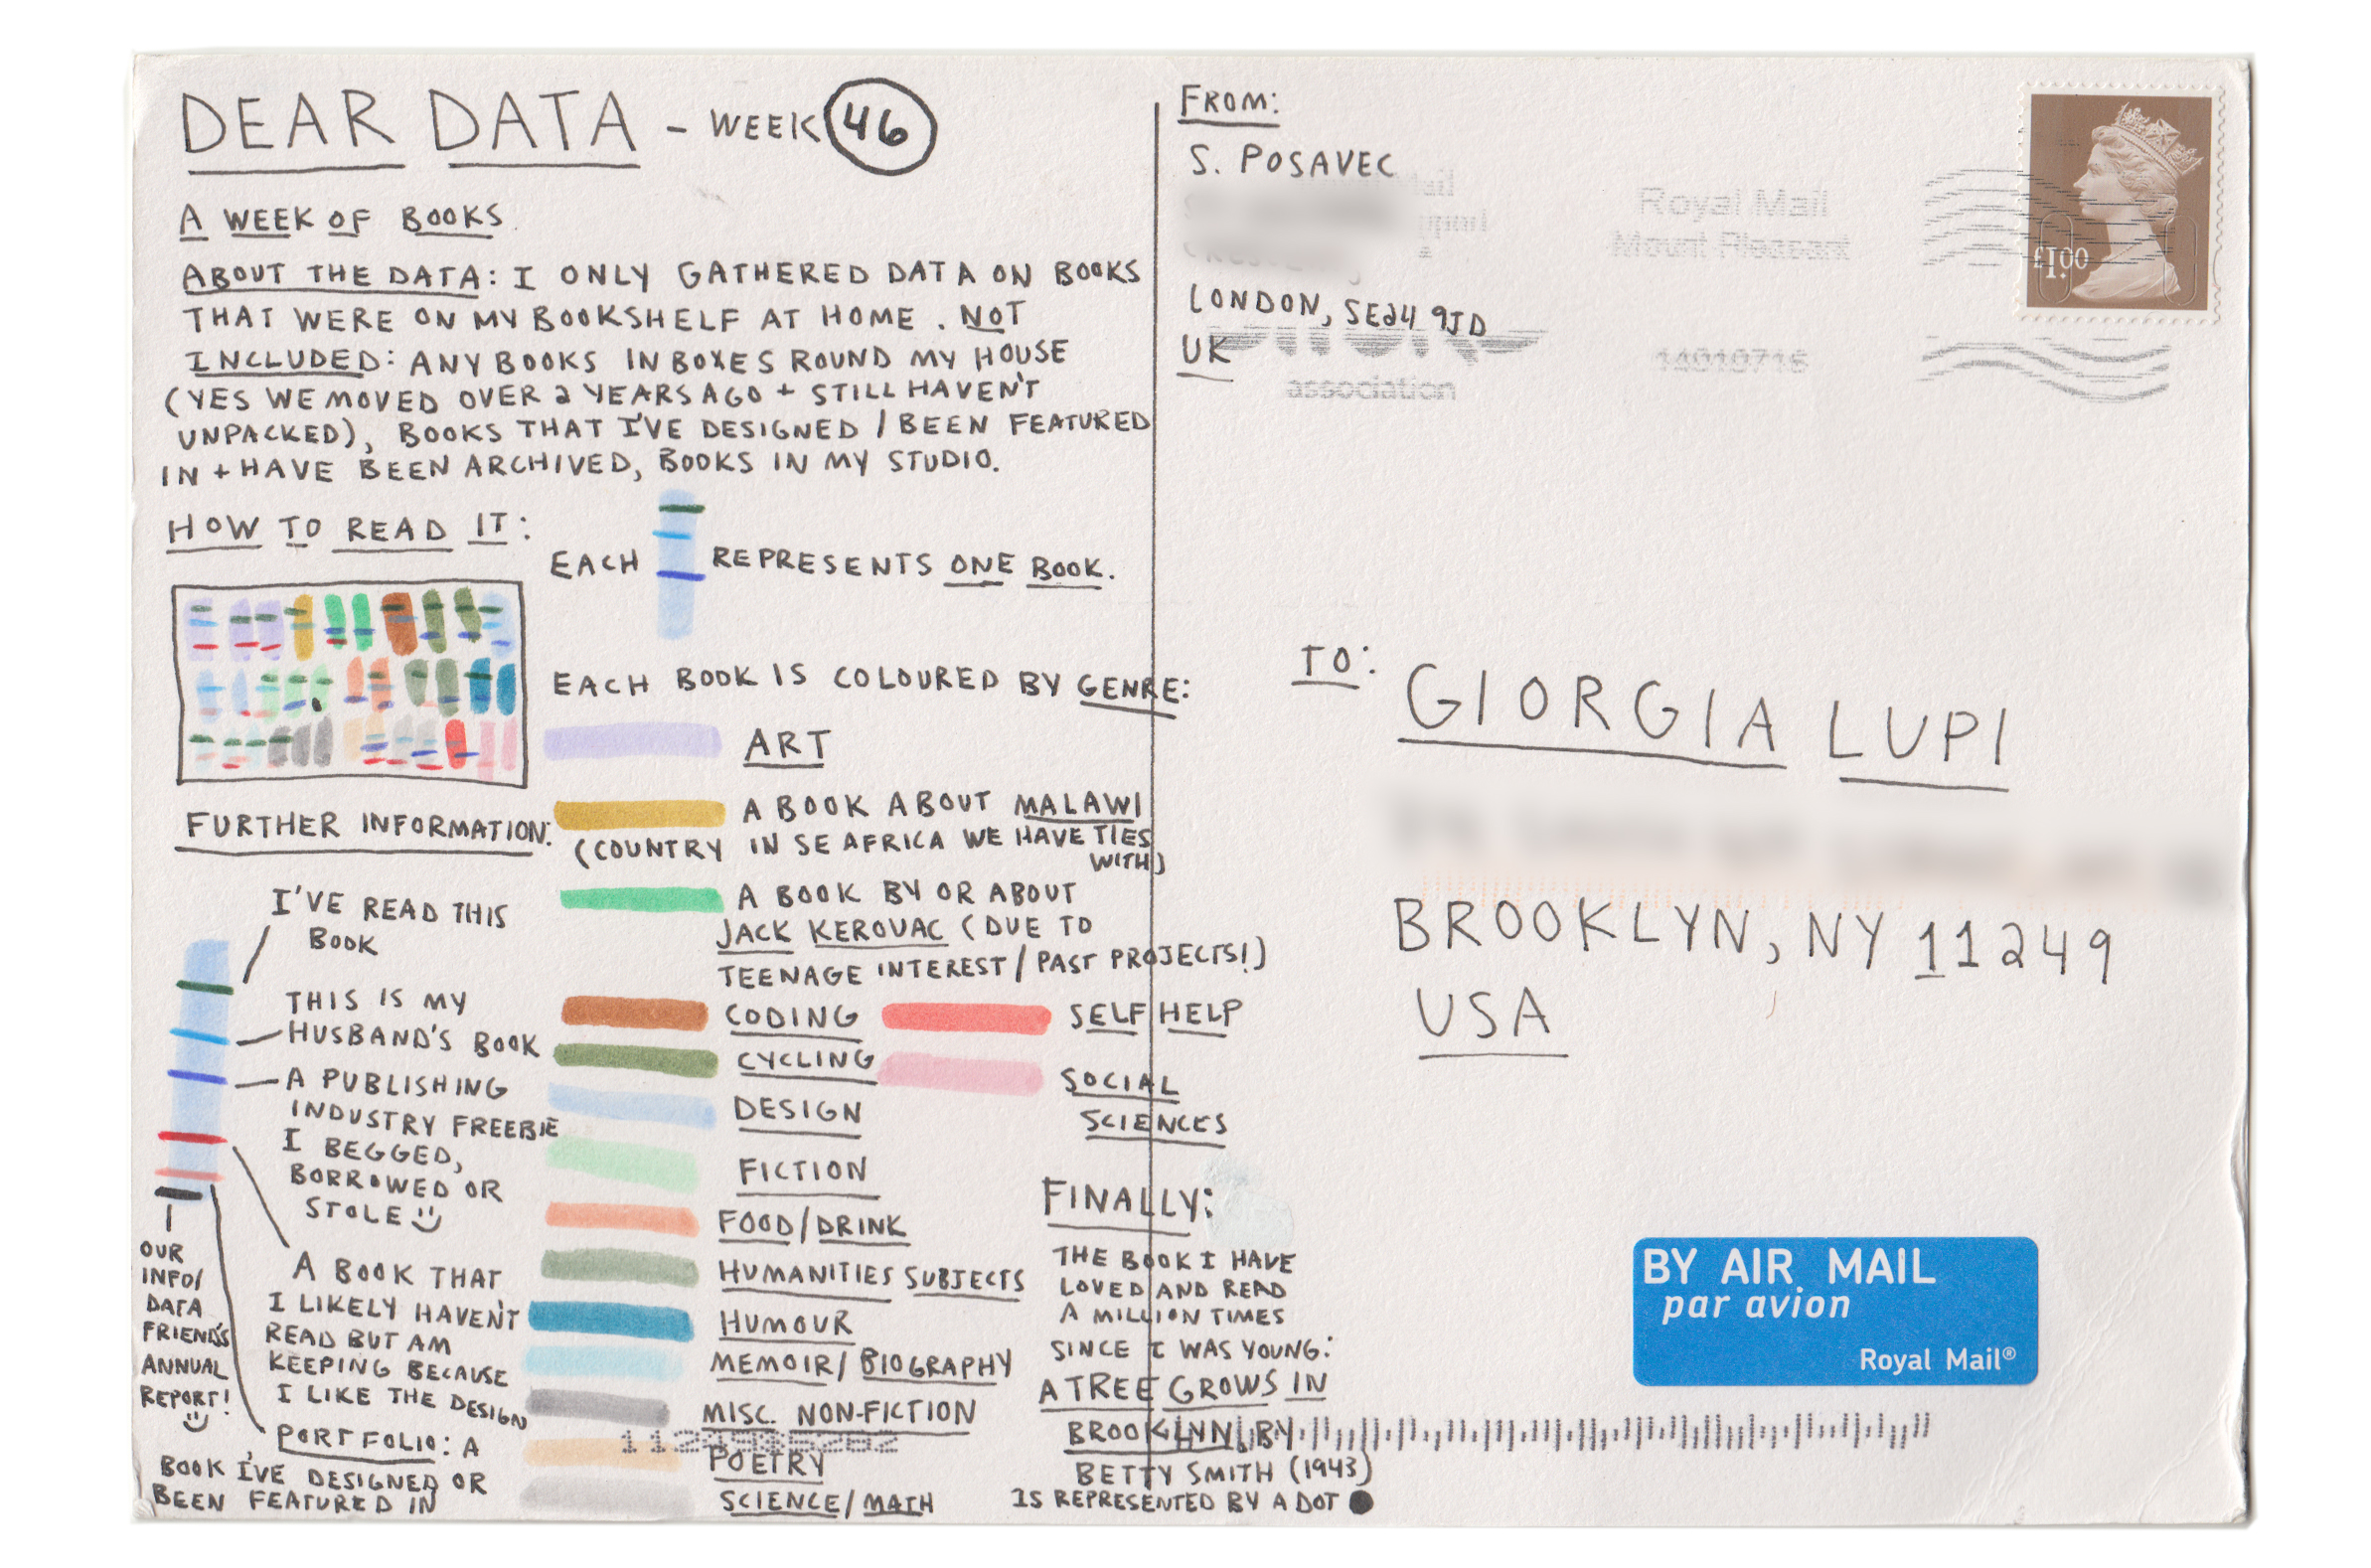 DEAR DATA - WEEK 46
A WEEK OF BOOKS.
ABOUT THE DATA: I ONLY GATHERED DATA ON BOOKS
THAT WERE ON MY BOOKSHELF AT HOME. NOT
INCLUDED: ANY BOOKS IN BOXES ROUND MY HOUSE
(YES WE MOVED OVER 2 YEARS AGO + STILL HAVEN'T
UNPACKED), BOOKS THAT I'VE DESIGNED / BEEN FEATURED
IN + HAVE BEEN ARCHIVED, BOOKS IN MY STUDIO.
HOW TO READ IT:
EACH REPRESENTS ONE BOOK.
EACH BOOK IS COLOURED BY GENRE:
ART
A BOOK ABOUT MALAWI
(COUNTRY IN SE AFRICA WE HAVE TIES
WITH)
A BOOK BY OR ABOUT
JACK KEROUAC (DUE TO
TEENAGE INTEREST / PAST PROJECTS!)
CODING
CYCLING
DESIGN
FICTION
FOOD/DRINK
HUMANITIES SUBJECTS
HUMOUR
MEMOIR/BIOGRAPHY
MISC. NON-FICTION
POETRY
SCIENCE/MATH
SELF HELP
SOCIAL
SCIENCES
FURTHER INFORMATION:
I'VE READ THIS
BOOK
THIS IS MY
HUSBAND'S BOOK
A PUBLISHING
INDUSTRY FREEBIE
I BEGGED,
BORROWED OR
STOLE
A BOOK THAT
I LIKELY HAVEN'T
READ BUT AM
KEEPING BECAUSE
I LIKE THE DESIGN
PORTFOLIO: A
BOOK I'VE DESIGNED OR
BEEN FEATURED IN
OUR
INFO/
DATA
FRIEND'S
ANNUAL
REPORT!
FINALLY:
THE BOOK I HAVE
LOVED AND READ
A MILLION TIMES
SINCE I WAS YOUNG:
A TREE GROWS IN
BROOKLYN, BY
BETTY SMITH (1943)
IS REPRESENTED BY A DOT
FROM:
S. POSAVEC
LONDON, SE24 9JD
UK
association
Royal Mail
Mount Pleasant
£1.00
TO: GIORGIA LUPI
BROOKLYN, NY 11249
USA
BY AIR MAIL
par avion
Royal Mail®